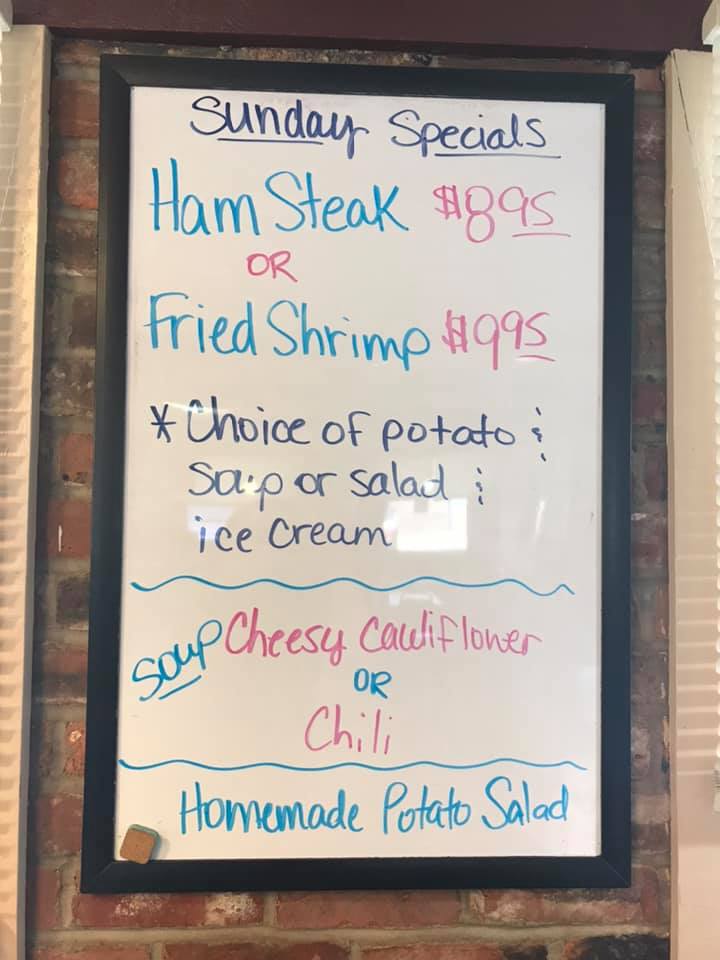 Sunday Specials
Ham Steak $8.95
OR
Fried Shrimp $9.95
* Choice of potato &
Soup or salad &
ice cream
Soup Cheesy Cauliflower
OR
Chili
Homemade Potato Salad